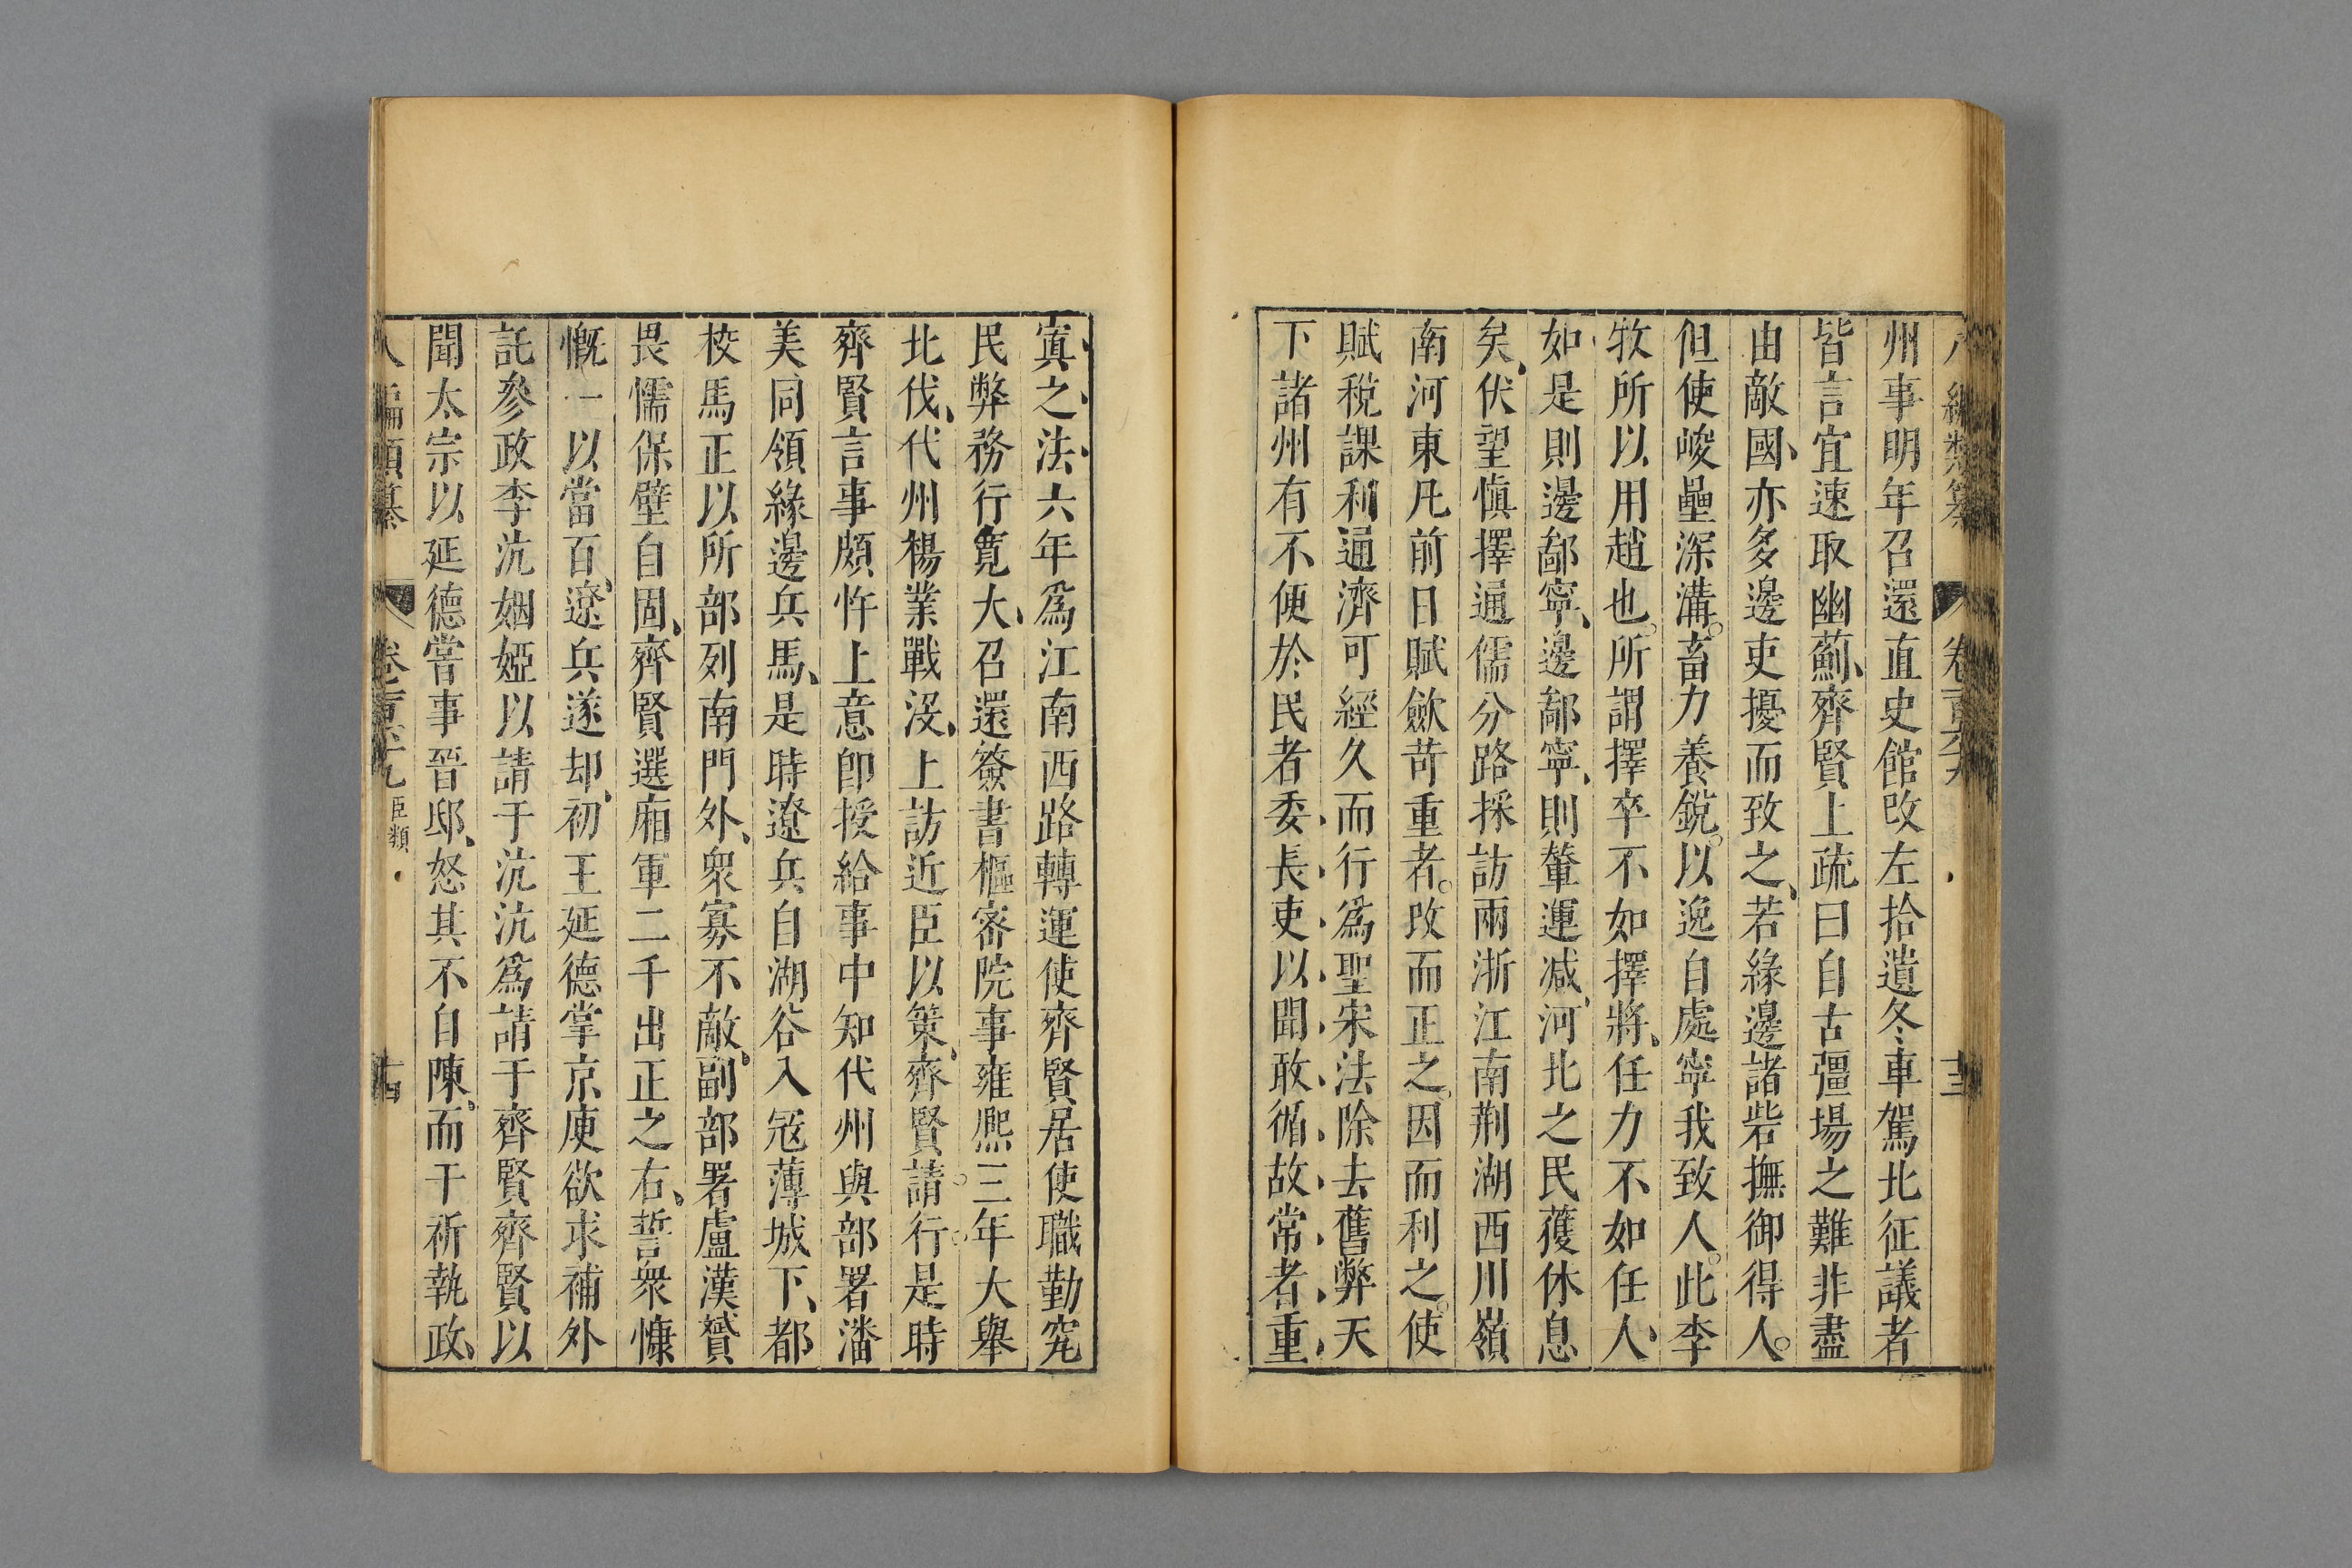 八編類纂 卷一百六十九 十三
州事明年召還直史館改左拾遺冬車駕北征議者
皆言宜速取幽薊、齊賢上疏曰自古彊場之難非盡
由敵國、亦多邊吏擾而致之、若緣邊諸砦撫御得人。
但使峻壘深溝。畜力養銳。以逸自處寧我致人。此李
牧所以用趙也。所謂擇卒不如擇將、任力不如任人、
如是則邊鄙寧、邊鄙寧、則輦運减、河北之民獲休息
矣、伏望慎擇通儒分路採訪兩浙江南荆湖西川嶺
南河東凡前日賦斂苛重者。改而正之。因而利之。使
賦稅課利通濟可經久而行爲聖宋法除去舊弊天
下諸州有不便於民者委、長、吏、以、聞、敢、循、故、常、者、重、
寘、之、法、六年爲江南西路轉運使齊賢居使職勤究
民弊務行寬大、召還簽書樞密院事雍熈三年大舉
北伐、代州楊業戰没、上訪近臣以策、齊賢請。行。是時
齊賢言事頗忤上意卽授給事中知代州與部署潘
美同領緣邊兵馬、是時遼兵自湖谷入冦薄城下、都
校馬正以所部列南門外、衆寡不敵、副部署盧漢贇
畏懦保壁自固、齊賢選廂軍二千出正之右、誓衆慷
慨一以當百、遼兵遂却、初王延德掌京庾欲求補外
託參政李沆姻婭以請于沆沆爲請于齊賢齊賢以
聞太宗以延德嘗事晉邸、怒其不自陳、而干祈執政、
八編類纂 卷一百六十九 臣類 十四